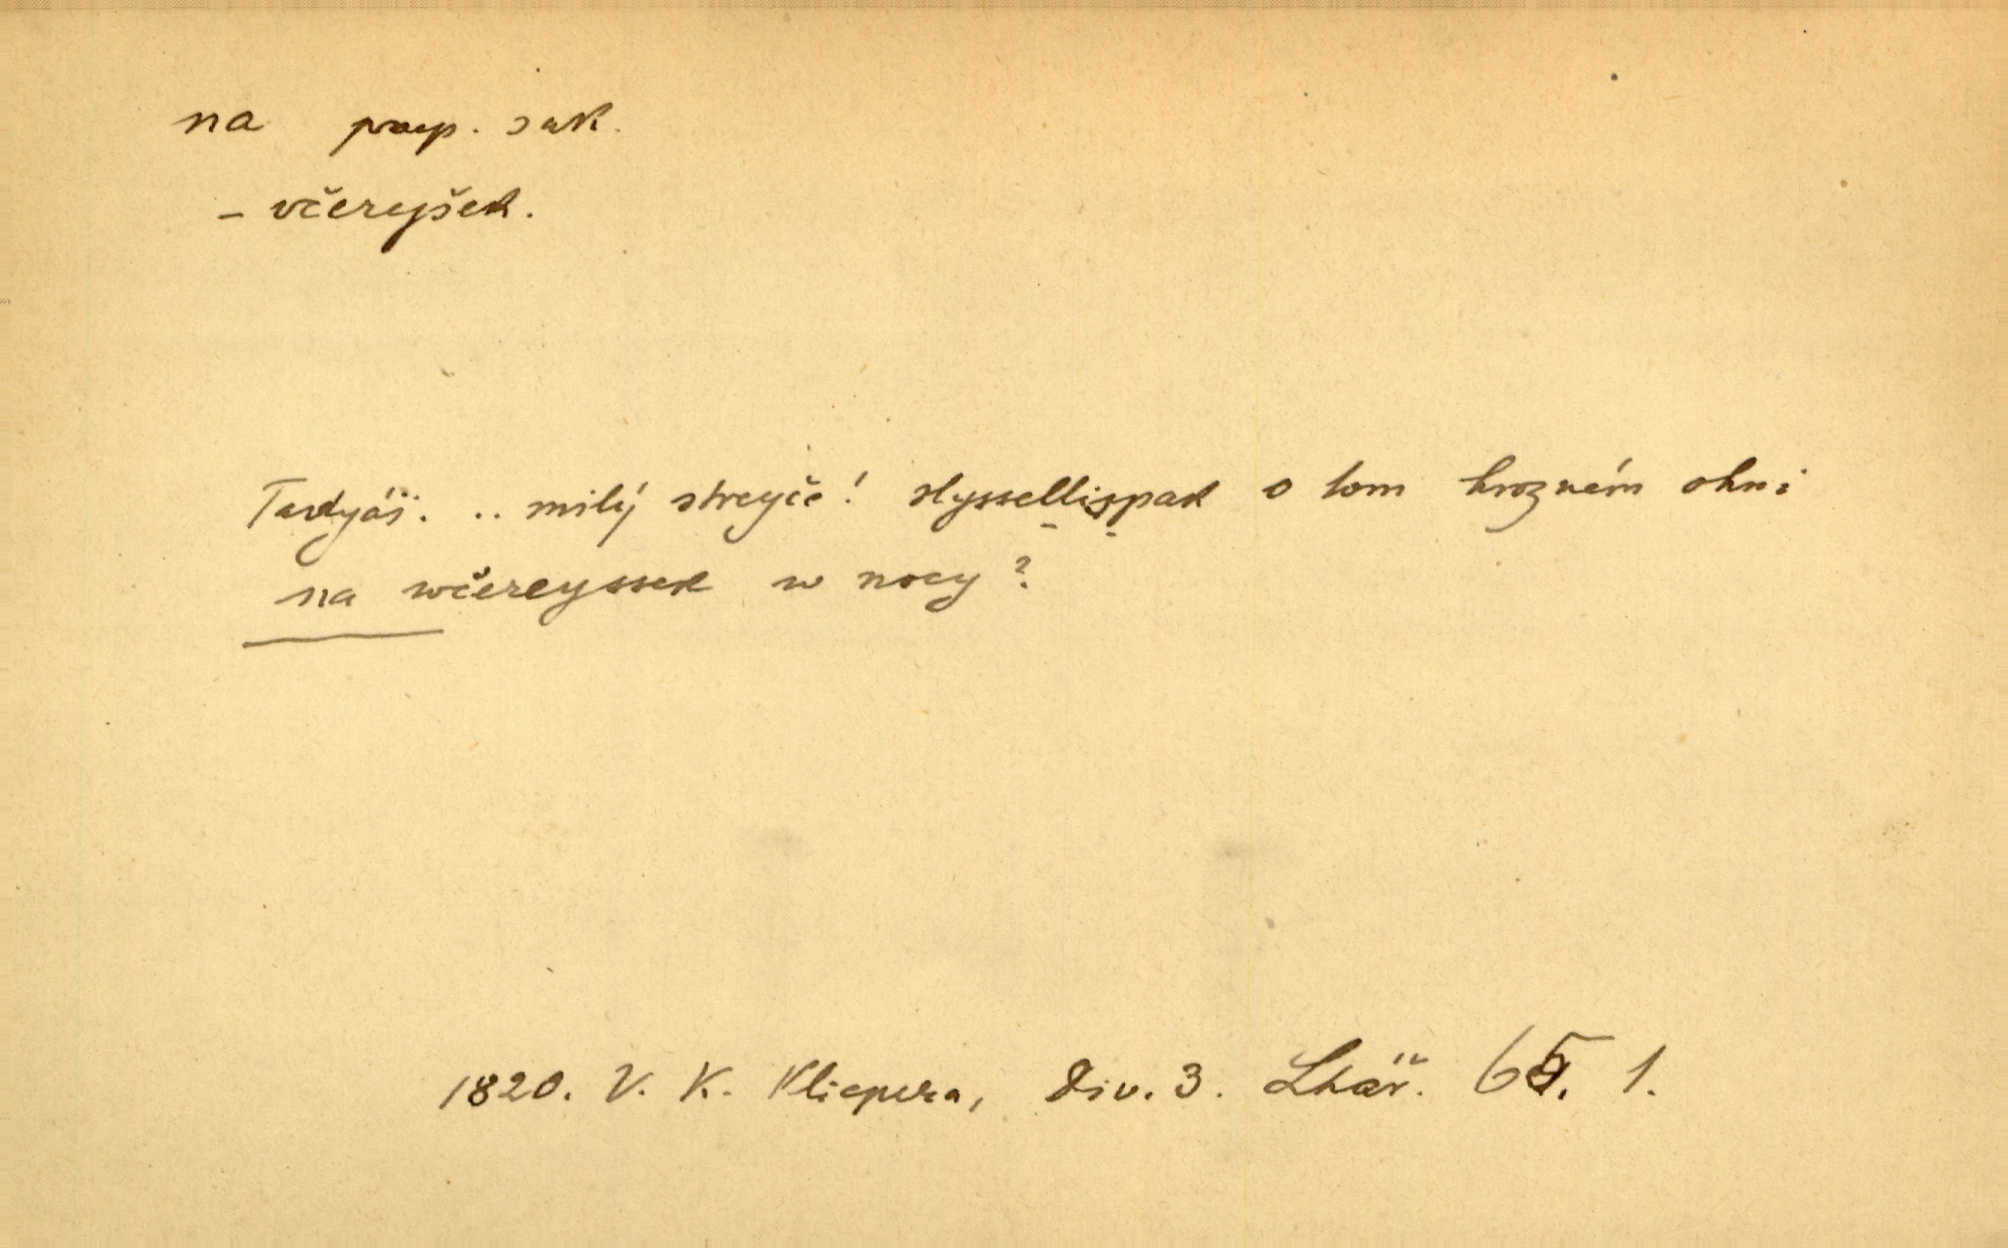 na praep. s ak.
– včerejšek.
Tadyáš. .. milý streyče! slyssellispak o tom hrozném ohni
na wčereyssek w nocy?
1820. V. K. Klicpera, Div. 3. Lhář. 65. 1.